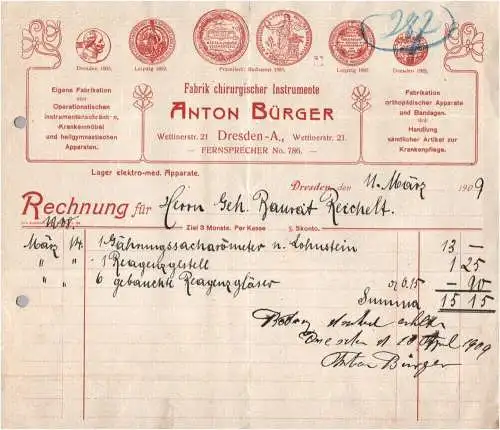 282
Dresden 1865. Leipzig 1892. Leipzig 1892. Dresden 1865.
Fabrik chirurgischer Instrumente
ANTON BÜRGER
Wettinerstr. 21 Dresden-A., Wettinerstr. 21.
FERNSPRECHER No. 786.
Eigene Fabrikation
von
Operationstischen
Instrumentenschränken
Krankenmöbel
und heilgymnastischen
Apparaten.
Fabrikation
orthopädischer Apparate
und Bandagen.
Handlung
sämtlicher Artikel zur
Krankenpflege.
Lager elektro-med. Apparate.
Dresden, den 11. März 1909
Rechnung für Herrn Geh. Baurat Reichelt.
Ziel 3 Monate. Per Kasse % Skonto.
1908.
März 14. 1 Gährungssacharometer n. Lohnstein 13 —
" " 1 Reagenzgestell 1 25
" " 6 gebauchte Reagenzgläser a 0.15 — 90
Summa 15 15
Betrag dankend erhalten
Dresden d 18 April 1909
Anton Bürger